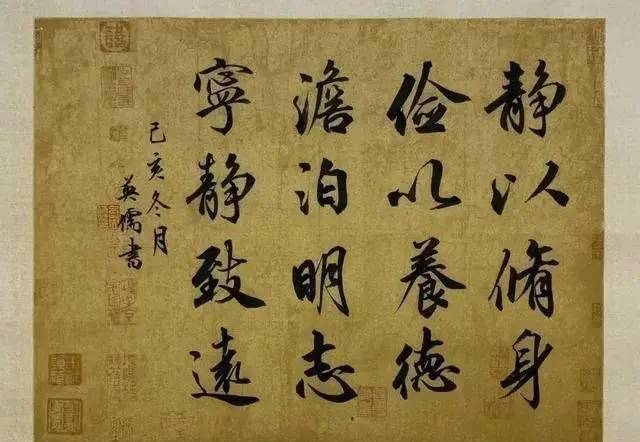 静以脩身
儉以養德
澹泊明志
寧静致遠
己亥冬月
英儒書